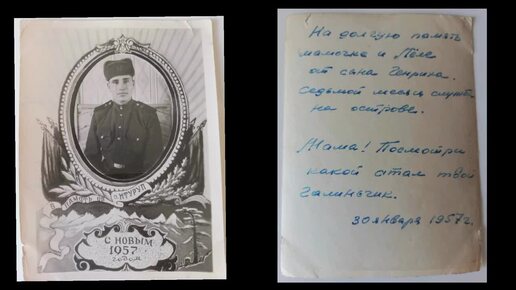 В ПАМЯТЬ ОБ о. ИТУРУП
С НОВЫМ
1957
годом
На долгую память
мамочке и Лёле
от сына Генриха.
Седьмой месяц службы
на острове.
Мама! Посмотри
какой стал твой
галинчик.
30 января 1957 г.